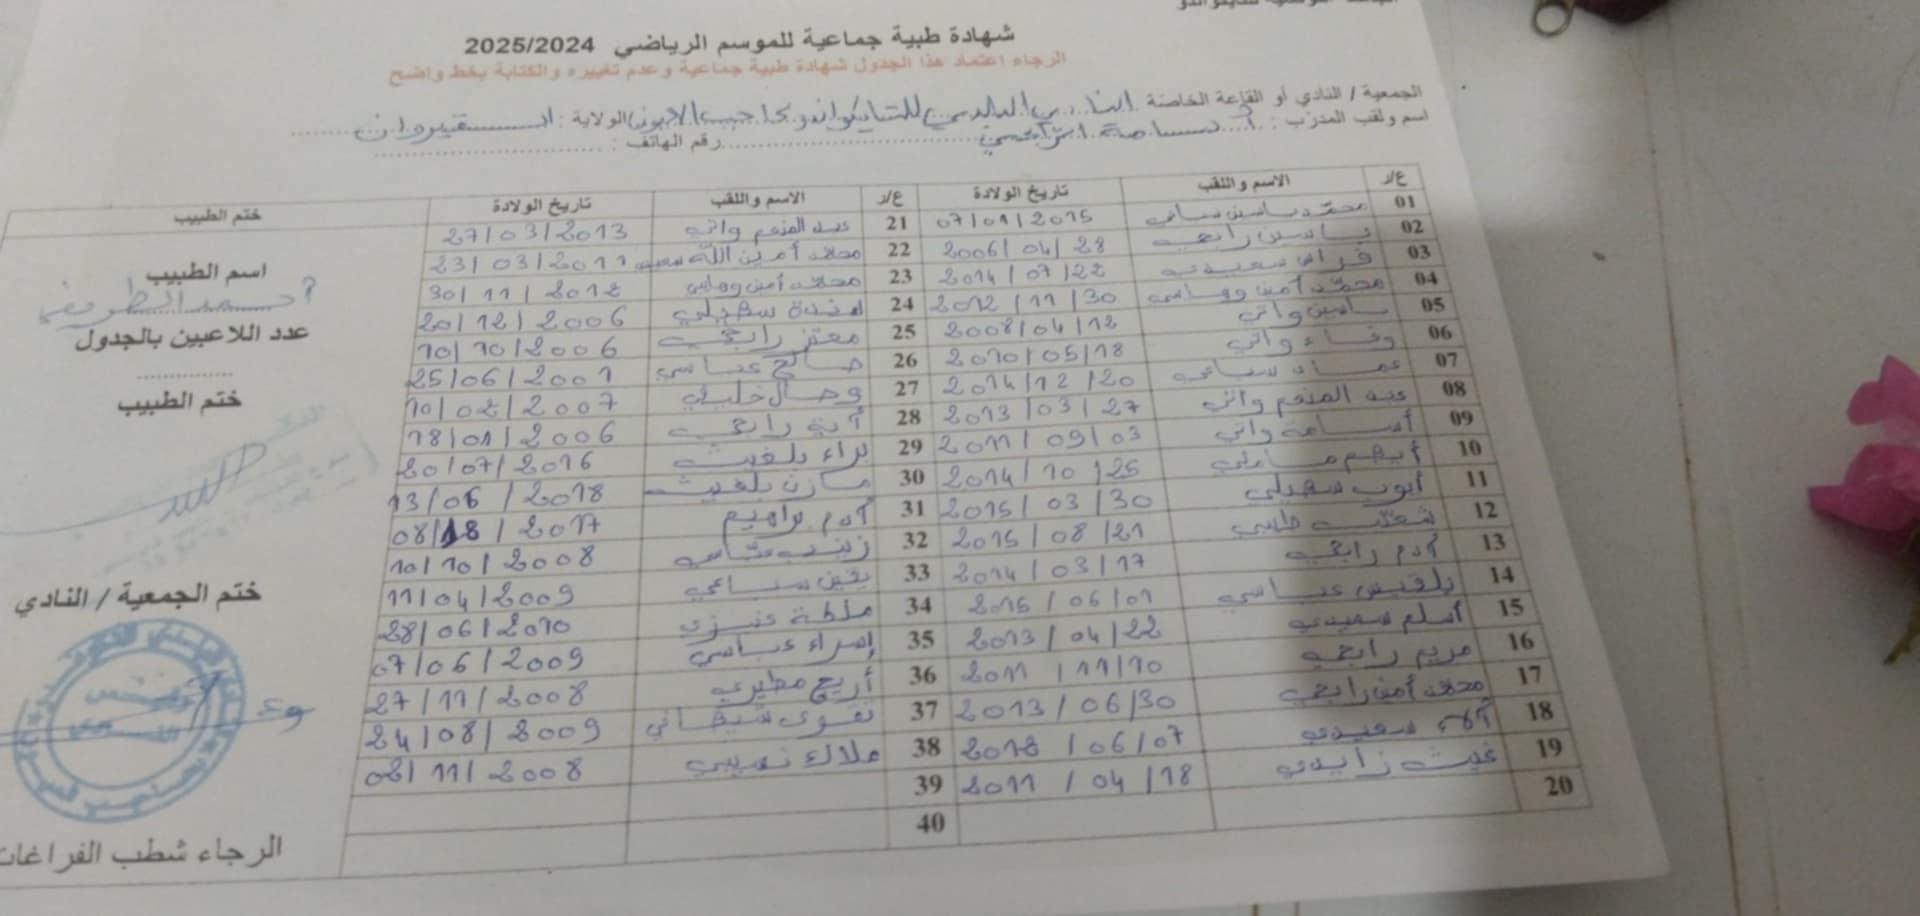 شهادة طبية جماعية للموسم الرياضي 2025/2024
الرجاء اعتماد هذا الجدول شهادة طبية جماعية وعدم تغييره والكتابة بخط واضح
الجمعية / النادي أو القاعة الخاصة النادي البلدي للتايكواندو بحاجب العيون الولاية : القيروان
اسم ولقب المدرب : أسامة الرابحي رقم الهاتف :
ع/ر الاسم واللقب تاريخ الولادة ع/ر الاسم واللقب تاريخ الولادة ختم الطبيب
01 محمد ياسين سباعي 07/01/2015 21 عبد المنعم واتي 27/03/2013
02 ياسين رابحي 2006/04/28 22 محمد أمين الله سعيدي 23/03/2011
03 فراس سعيدي 2014/07/22 23 محمد أمين وهابي 30/11/2012
04 محمد أمين وهابي 2012/11/30 24 سهيلي 20/12/2006
05 ياسين واتي 2008/04/12 25 معتز رابحي 10/10/2006
06 وفاء واتي 2010/05/18 26 صالح عباسي 25/06/2001
07 عماد سباعي 2014/12/20 27 وصال خليفي 10/02/2007
08 عبد المنعم واتي 2013/03/27 28 آية رابحي 18/01/2006
09 أسامة واتي 2011/09/03 29 براء بلغيث 20/07/2016
10 أيهم 2014/10/25 30 مازن بلغيث 13/06/2018
11 أيوب سهيلي 2015/03/30 31 آدم براهيم 08/18/2017
12 شعيب طيبي 2015/08/21 32 زينب عباسي 10/10/2008
13 آدم رابحي 2014/03/17 33 يقين سباعي 11/04/2009
14 بلقيس عباسي 2015/06/01 34 ملكة عنيزي 28/06/2010
15 أسلم سعيدي 2013/04/22 35 إسراء عباسي 07/06/2009
16 مريم رابحي 2011/11/10 36 أريج مطيري 27/11/2008
17 محمد أمين رابحي 2013/06/30 37 تقوى شيحاني 24/08/2009
18 آلاء سعيدي 2012/06/07 38 ملاك نصيبي 02/11/2008
19 غيث زايدي 2011/04/18 39
20 40
اسم الطبيب
أحمد الطريفي
عدد اللاعبين بالجدول
ختم الطبيب
ختم الجمعية / النادي
الرجاء شطب الفراغات